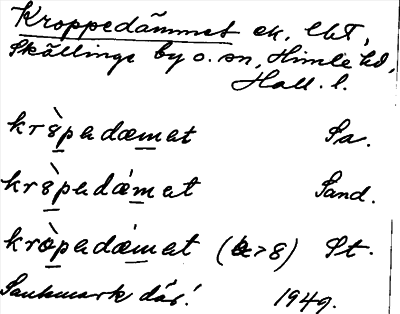 Kroppedämmet ek, lht,
Skällinge by o. sn, Himle hd,
Hall. l.
krȣ̀padæmat Sa.
krȣ̀padǽmat Sand.
kròpadǽmat ( >ȣ) St.
Sankmark där! 1949.